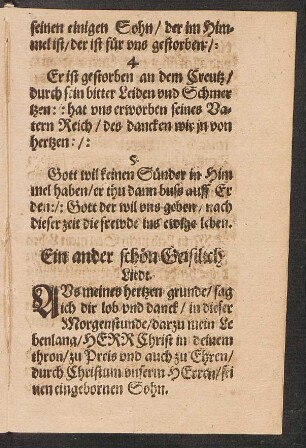 seinen einigen Sohn/ der im Him-
mel ist/ der ist für vns gestorben:/:
4.
Er ist gestorben an dem Creutz/
durch sein bitter Leiden vnd Schmer
tzen:/: hat vns erworben seines Va-
tern Reich/ des dancken wir jn von
hertzen:/:
5.
Gott wil keinen Sünder in Him
mel haben/ er thu dann buss auff Er
den:/: Gott der wil vns geben/ nach
dieser zeit die frewde ins ewige leben.
Ein ander schön Geistlich
Liedt.
AVs meines hertzen grunde/ sag
ich dir lob vnd danck/ in dieser
Morgenstunde/ darzu mein Le
benlang/ HERR Christ in deinem
thron/ zu Preis vnd auch zu Ehren/
durch Christum vnserm HErren/ sei
nen eingebornen Sohn.